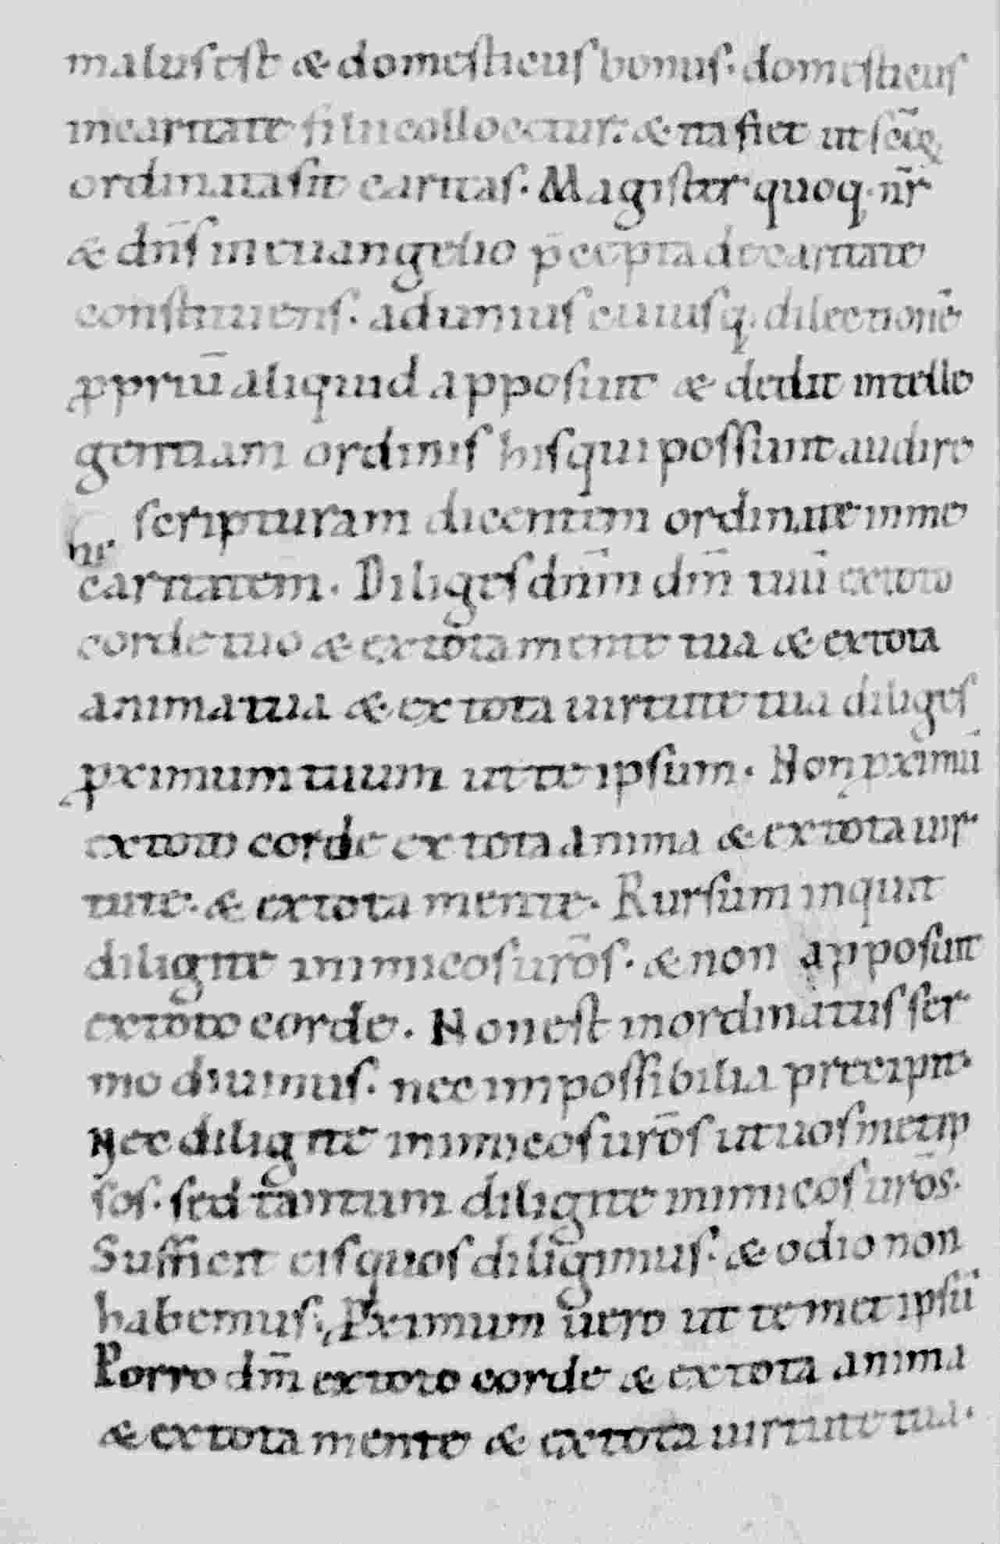 malus est & domesticus bonus. domesticus
in caritate filii collocetur. & ita fiet ut sc̄iȩ
ordinata sit caritas. Magister quoq. nr̄
& dn̄s in euangelio p̄cepta de caritate
constituens. ad unius cuiusq. dilectionē
ꝓpriū aliquid apposuit & dedit intelle
gentiam ordinis his qui possunt audire
scripturam dicentem ordinate in me
caritatem. Diliges dn̄m dm̄ tuū ex toto
corde tuo & ex tota mente tua & ex tota
anima tua & ex tota uirtute tua diliges
ꝓximum tuum ut te ipsum. Non ꝓximū
ex toto corde ex tota anima & ex tota uir
tute. & ex tota mente. Rursum inquit
diligite inimicos ur̄os. & non apposuit
ex toto corde. Non est inordinatus ser
mo diuinus. nec impossibilia precipit.
Nec diligite inimicos ur̄os ut uosmetip
sos. sed tantum diligite inimicos ur̄os.
Sufficit eis quos diligimus. & odio non
habemus. Ꝓximum uero ut temet ipsū
Porro dm̄ ex toto corde & ex tota anima
& ex tota mente & ex tota uirtute tua.